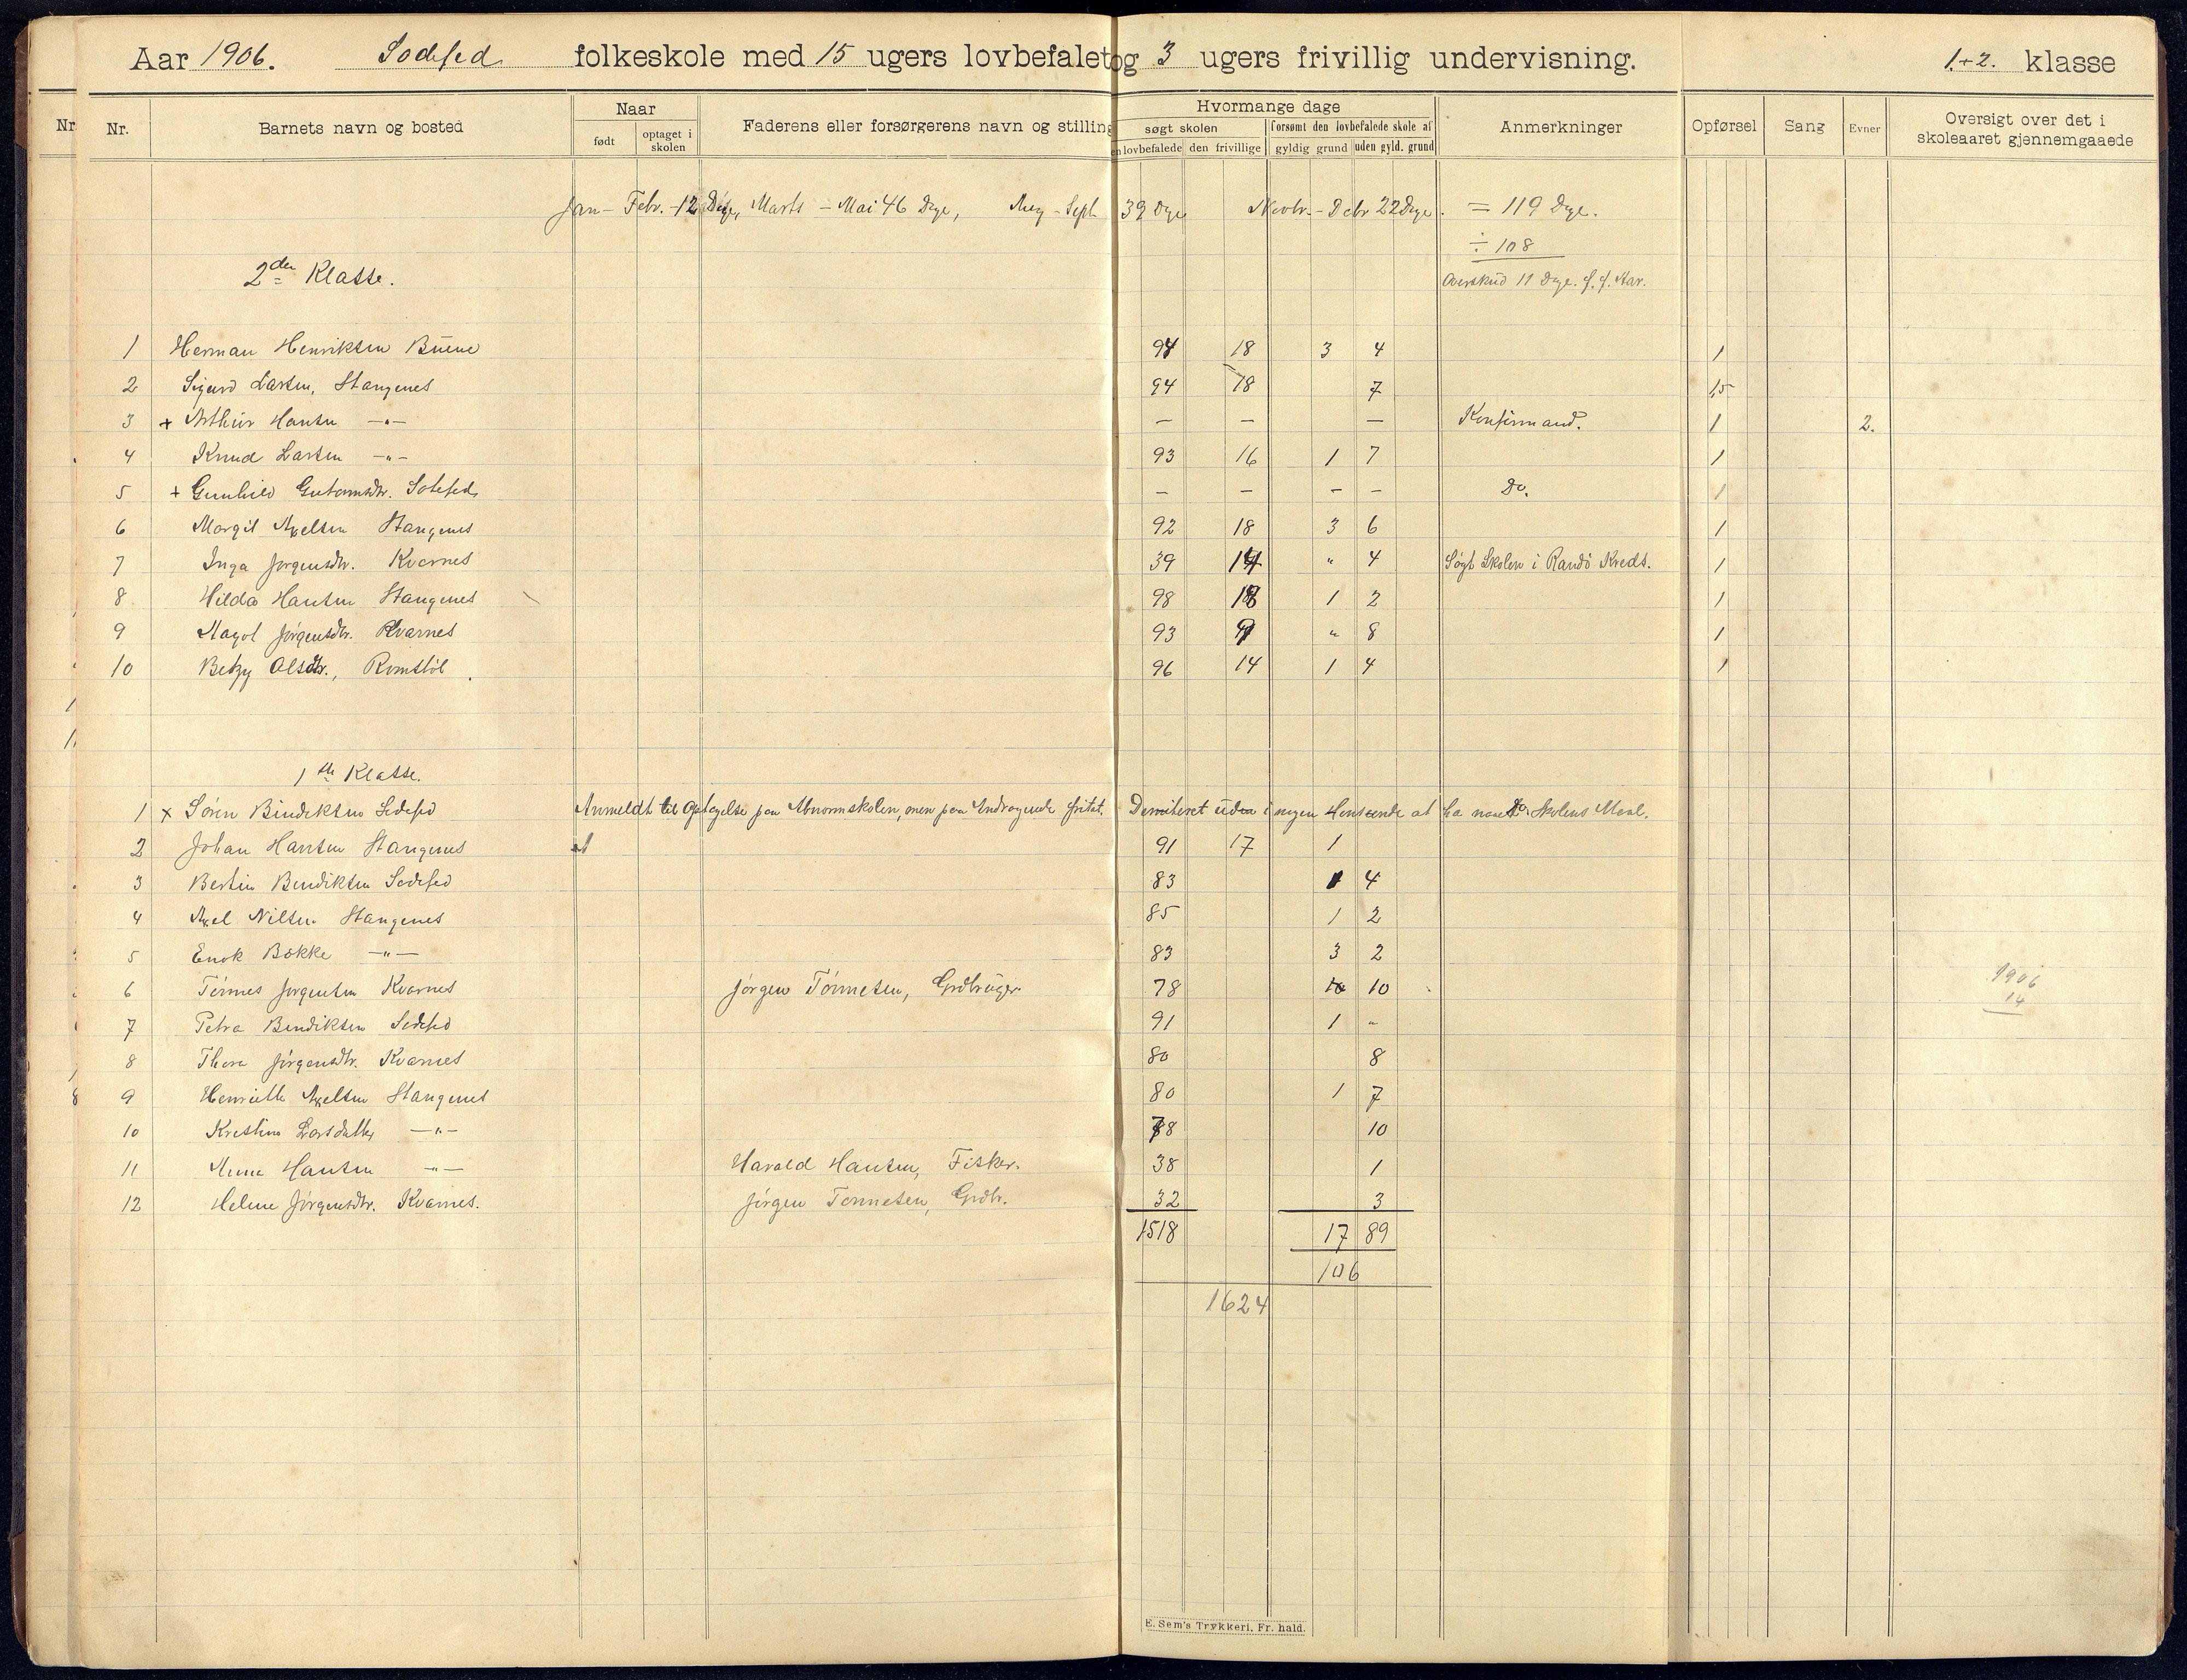 Aar 1906. Sodefed folkeskole med 15 ugers lovbefalet og 3 ugers frivillig undervisning. 1.+2. klasse
Nr. Barnets navn og bosted Naar født optaget i skolen Faderens eller forsørgerens navn og stilling Hvormange dage søgt skolen den lovbefalede den frivillige forsømt den lovbefalede skole af gyldig grund uden gyld. grund Anmerkninger Opførsel Sang Evner Oversigt over det i skoleaaret gjennemgaaede
Jan - Febr. - 12 Dage, Marts - Mai 46 Dage, Aug - Sept 39 Dge Novbr. - Debr 22 Dage. = 119 Dge.
÷ 108
2den Klasse. Overskud 11 Dge. f. f. Aar.
1 Herman Henriksen Buene 94 18 3 4 1
2 Sigurd Larsen, Stangenes 94 18 7 1,5
3 + Arthur Hansen -"- — — — Konfirmand. 1 2.
4 Knud Larsen -"- 93 16 1 7 1
5 + Gunhild Gutormsdtr. Sodefed — — — — Do. 1
6 Margit Axelsen Stangenes 92 18 3 6 1
7 Inga Jørgensdtr. Kvarnes 39 14 " 4 Søgt Skolen i Randø Kreds. 1
8 Hilda Hansen Stangenes 98 18 1 2 1
9 Magol Jørgensdtr. Kvarnes 93 9 " 8 1
10 Betzy Olsdtr., Romstøl 96 14 1 4 1
1ste Klasse.
1 x Søren Bendiksen Sodefed Anmeldt til Optagelse paa Abnormskolen, men paa Andragende fritat. Demiteret uden i nogen Henseende at ha naaet Skolens Maal.
2 Johan Hansen Stangenes 91 17 1
3 Bertin Bendiksen Sodefed 83 1 4
4 Axel Nilsen Stangenes 85 1 2
5 Enok Bakke -"- 83 3 2
6 Tønnes Jørgensen Kvarnes Jørgen Tønnesen, Grdbruger 78 10 10
7 Petra Bendiksen Sodefed 91 1 "
8 Thora Jørgensdtr. Kvarnes 80 8
9 Henriette Axelsen Stangenes 80 1 7
10 Kristine Larsdatter -"- 78 10
11 Anna Hansen -"- Harald Hansen, Fisker. 38 1
12 Helene Jørgensdtr. Kvarnes. Jørgen Tønnesen, Grdbr. 32 3
1518 17 89
106
1624
1906
14
E. Sem's Trykkeri, Fr. hald.